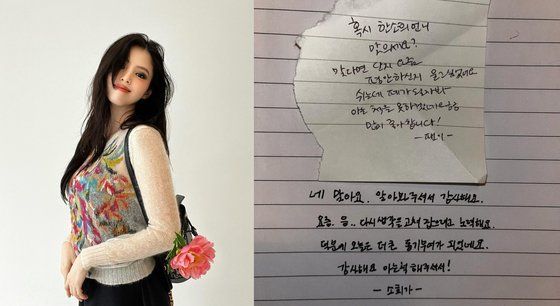 혹시 한소희언니
맞으세요?
맞다면 단지 요즘
안하신지 묻고싶었어요
쉬는데 제가 되려
아는 척은 못하겠
많이 좋아합니다!
-팬이-
네 맞아요. 알아봐주셔서 감사해요.
요즘. 음.. 다시 생각을 고쳐 잡으려고 노력해요.
덕분에 오늘도 더 큰 동기부여가 되었네요.
감사해요 아는척 해주셔서!
- 소희가 -